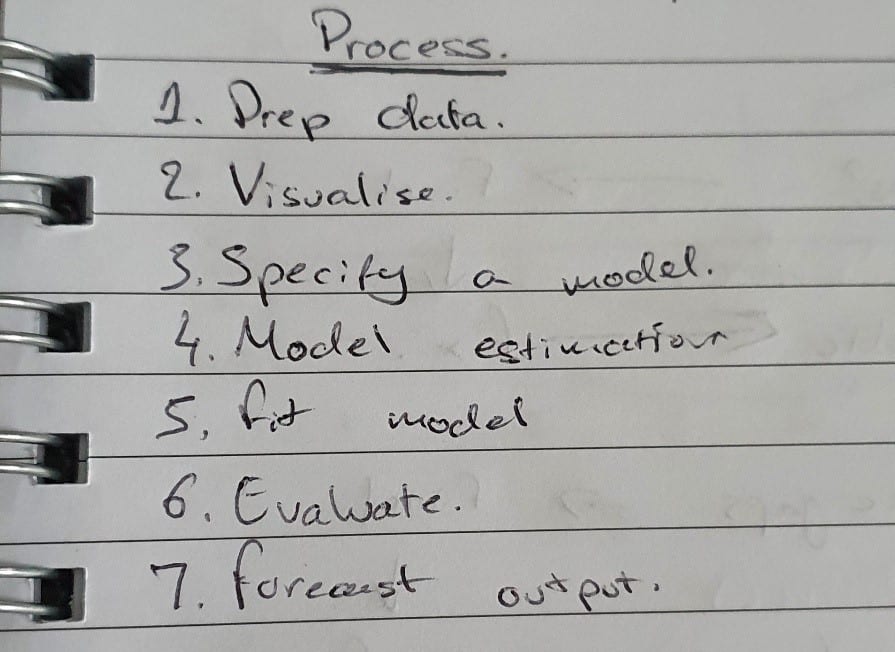 Process.
1. Prep data.
2. Visualise.
3. Specify a model.
4. Model estimation
5. fit model
6. Evaluate.
7. forecast output.